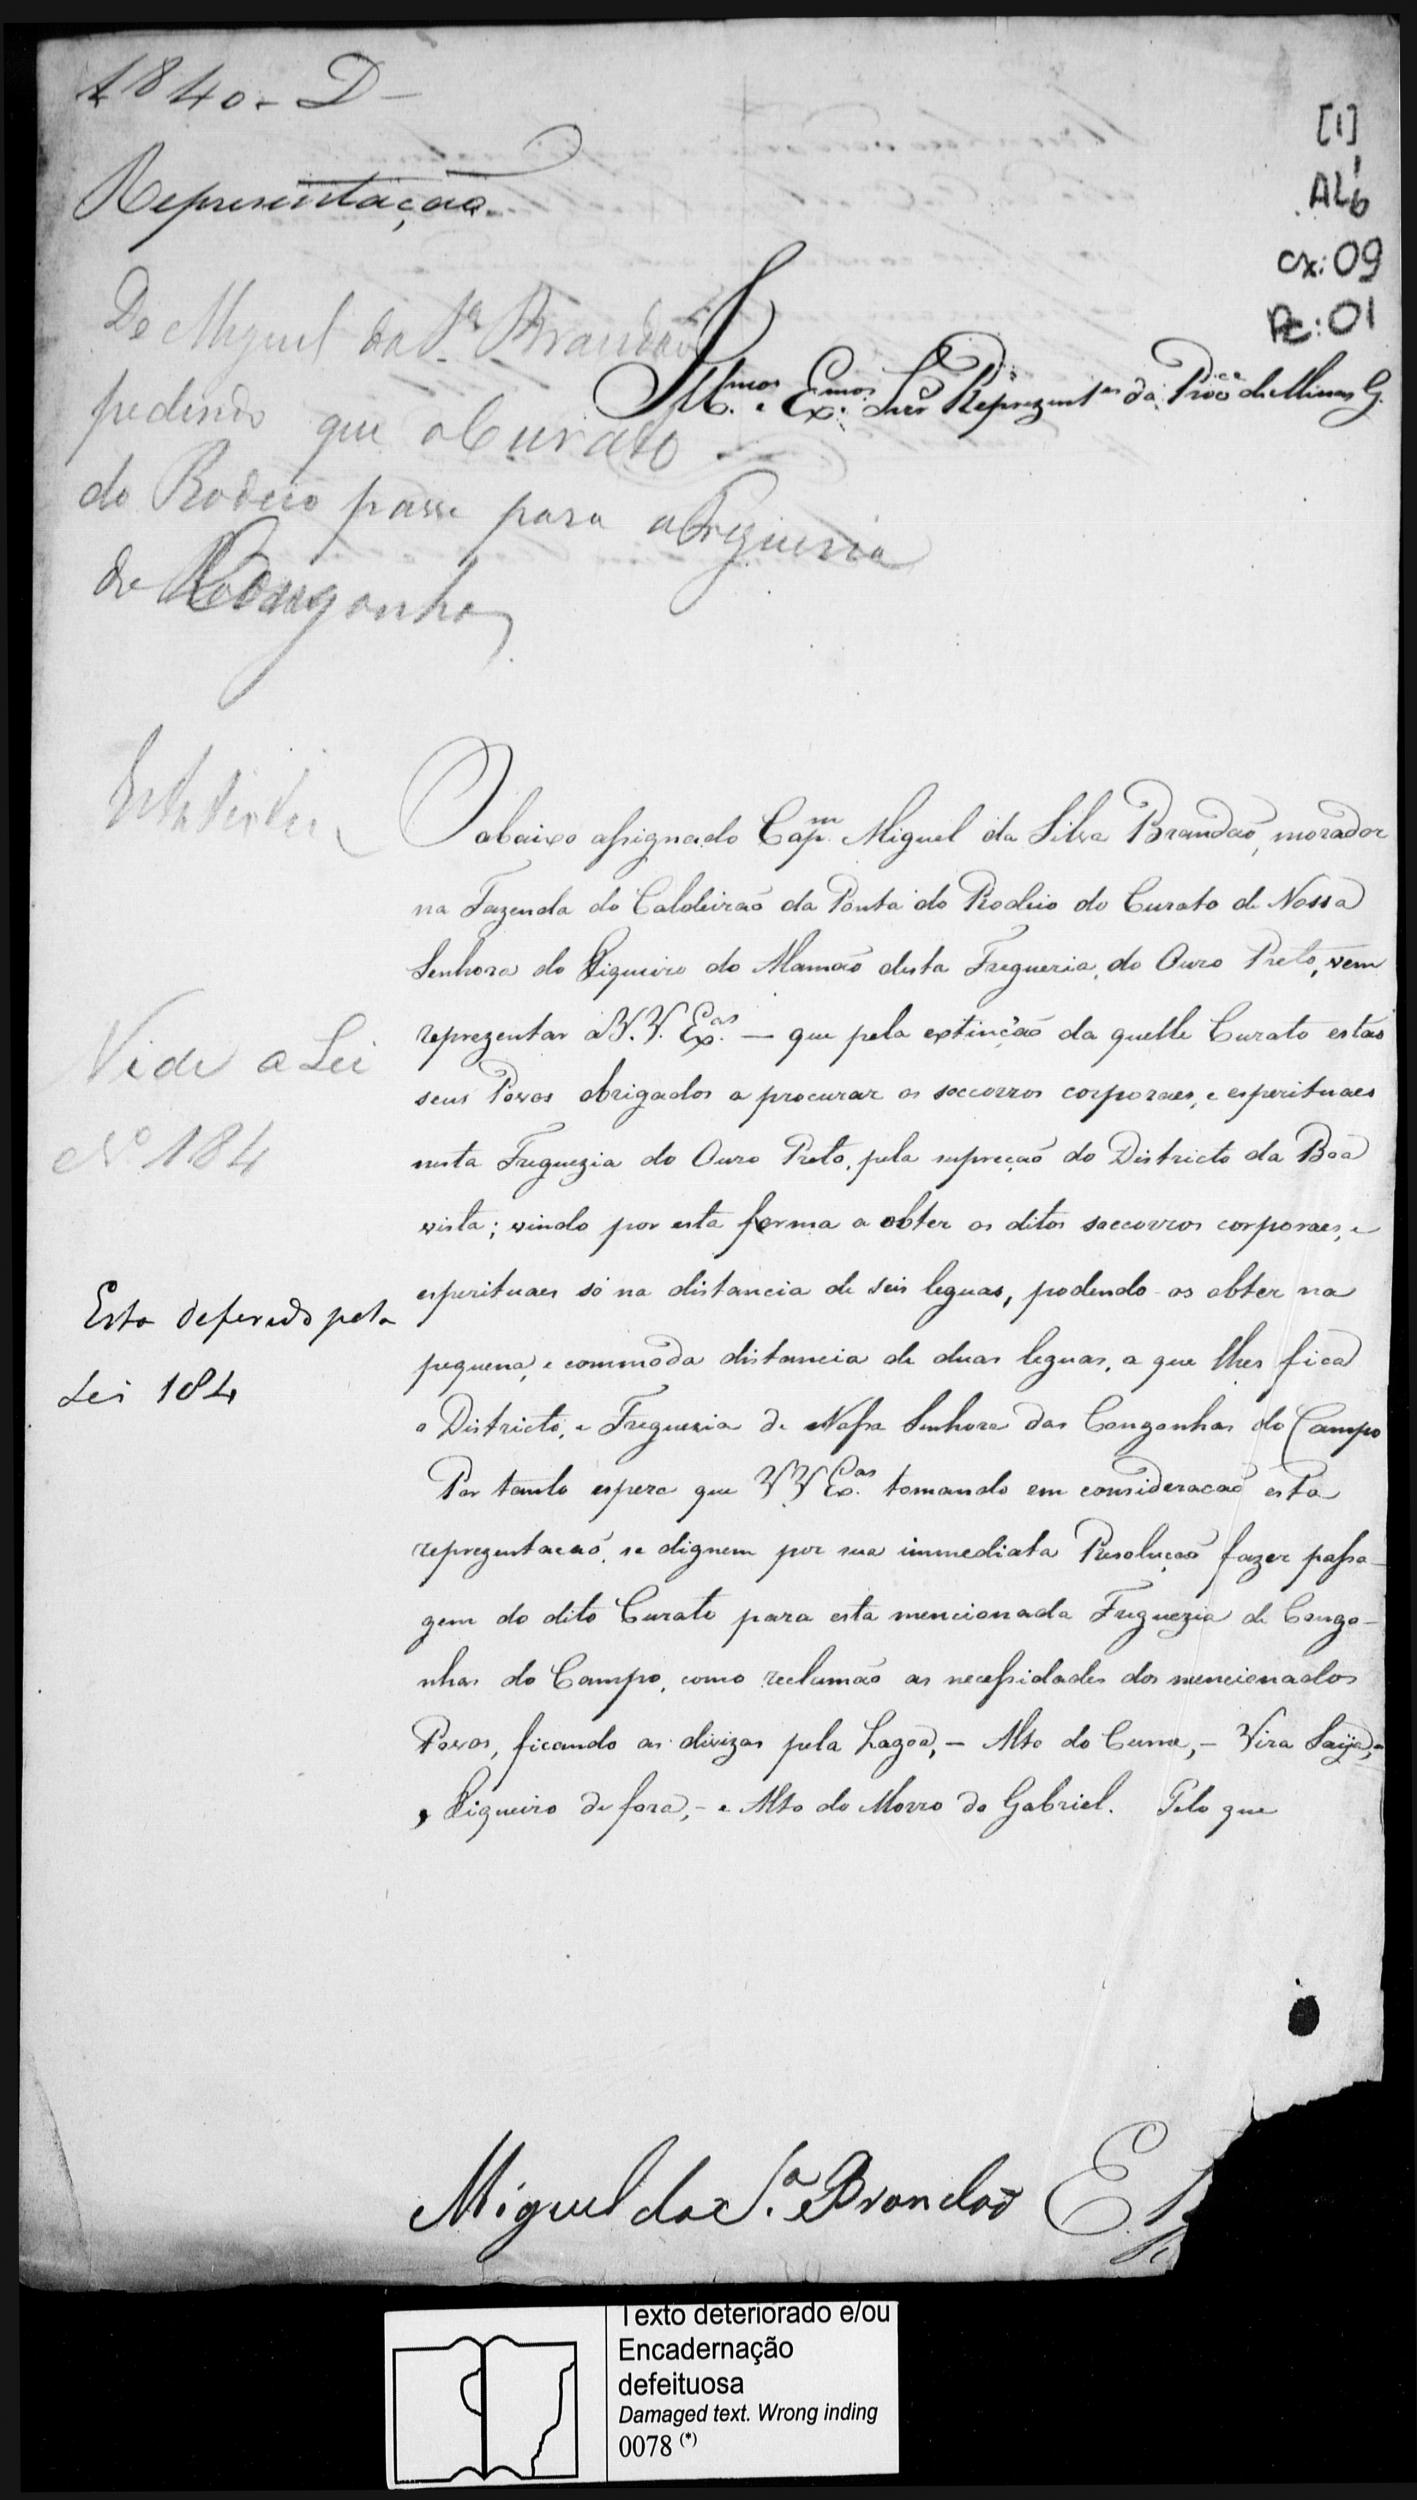 1840 - D -
Representação
[1]
AL 6
cx: 09
Pc: 01
De Miguel da S.ª Brandão
pedindo que o Curato
do Rodeio passe para a Freguesia
de Congonhas
Ill.mos e Ex.mos Snres Reprezent.es da Prov.ca de Minas G.
Vide a Lei
Nº 184
Esta deferido pela
Lei 184
O abaixo assignado Cap.m Miguel da Silva Brandaõ, morador
na Fazenda do Caldeiraõ da Ponta do Rodeio do Curato de Nossa
Senhora do Xiqueiro do Alamaõ desta Freguesia, do Ouro Preto, vem
reprezentar a V.V. Ex.as — que pela extinçaõ da quelle Curato estaõ
seus Povos obrigados a procurar os soccorros corporaes, e esperituaes
nesta Freguezia do Ouro Preto, pela supreçaõ do Districto da Boa
vista; vindo por esta forma a obter os ditos soccorros corporaes, e
esperituaes só na distancia de seis leguas, podendo-os obter na
pequena, e commoda distancia de duas leguas, a que lhes fica
o Districto, e Freguesia de Nossa Senhora das Congonhas do Campo
Por tanto espera que VV Ex.as tomando em consideracaõ esta
reprezentacaõ, se dignem por sua immediata Resoluçaõ fazer passa-
gem do dito Curato para esta mencionada Freguezia de Congo-
nhas do Campo, como reclamaõ as necessidades dos mencionados
Povos, ficando as divizas pela Lagoa, - Alto do Cume, - Vira Saija, -
Xiqueiro de fora, - e Alto do Morro do Gabriel. Pelo que
Miguel da S.ª Brandaõ E
Texto deteriorado e/ou
Encadernação
defeituosa
Damaged text. Wrong inding
0078 (*)